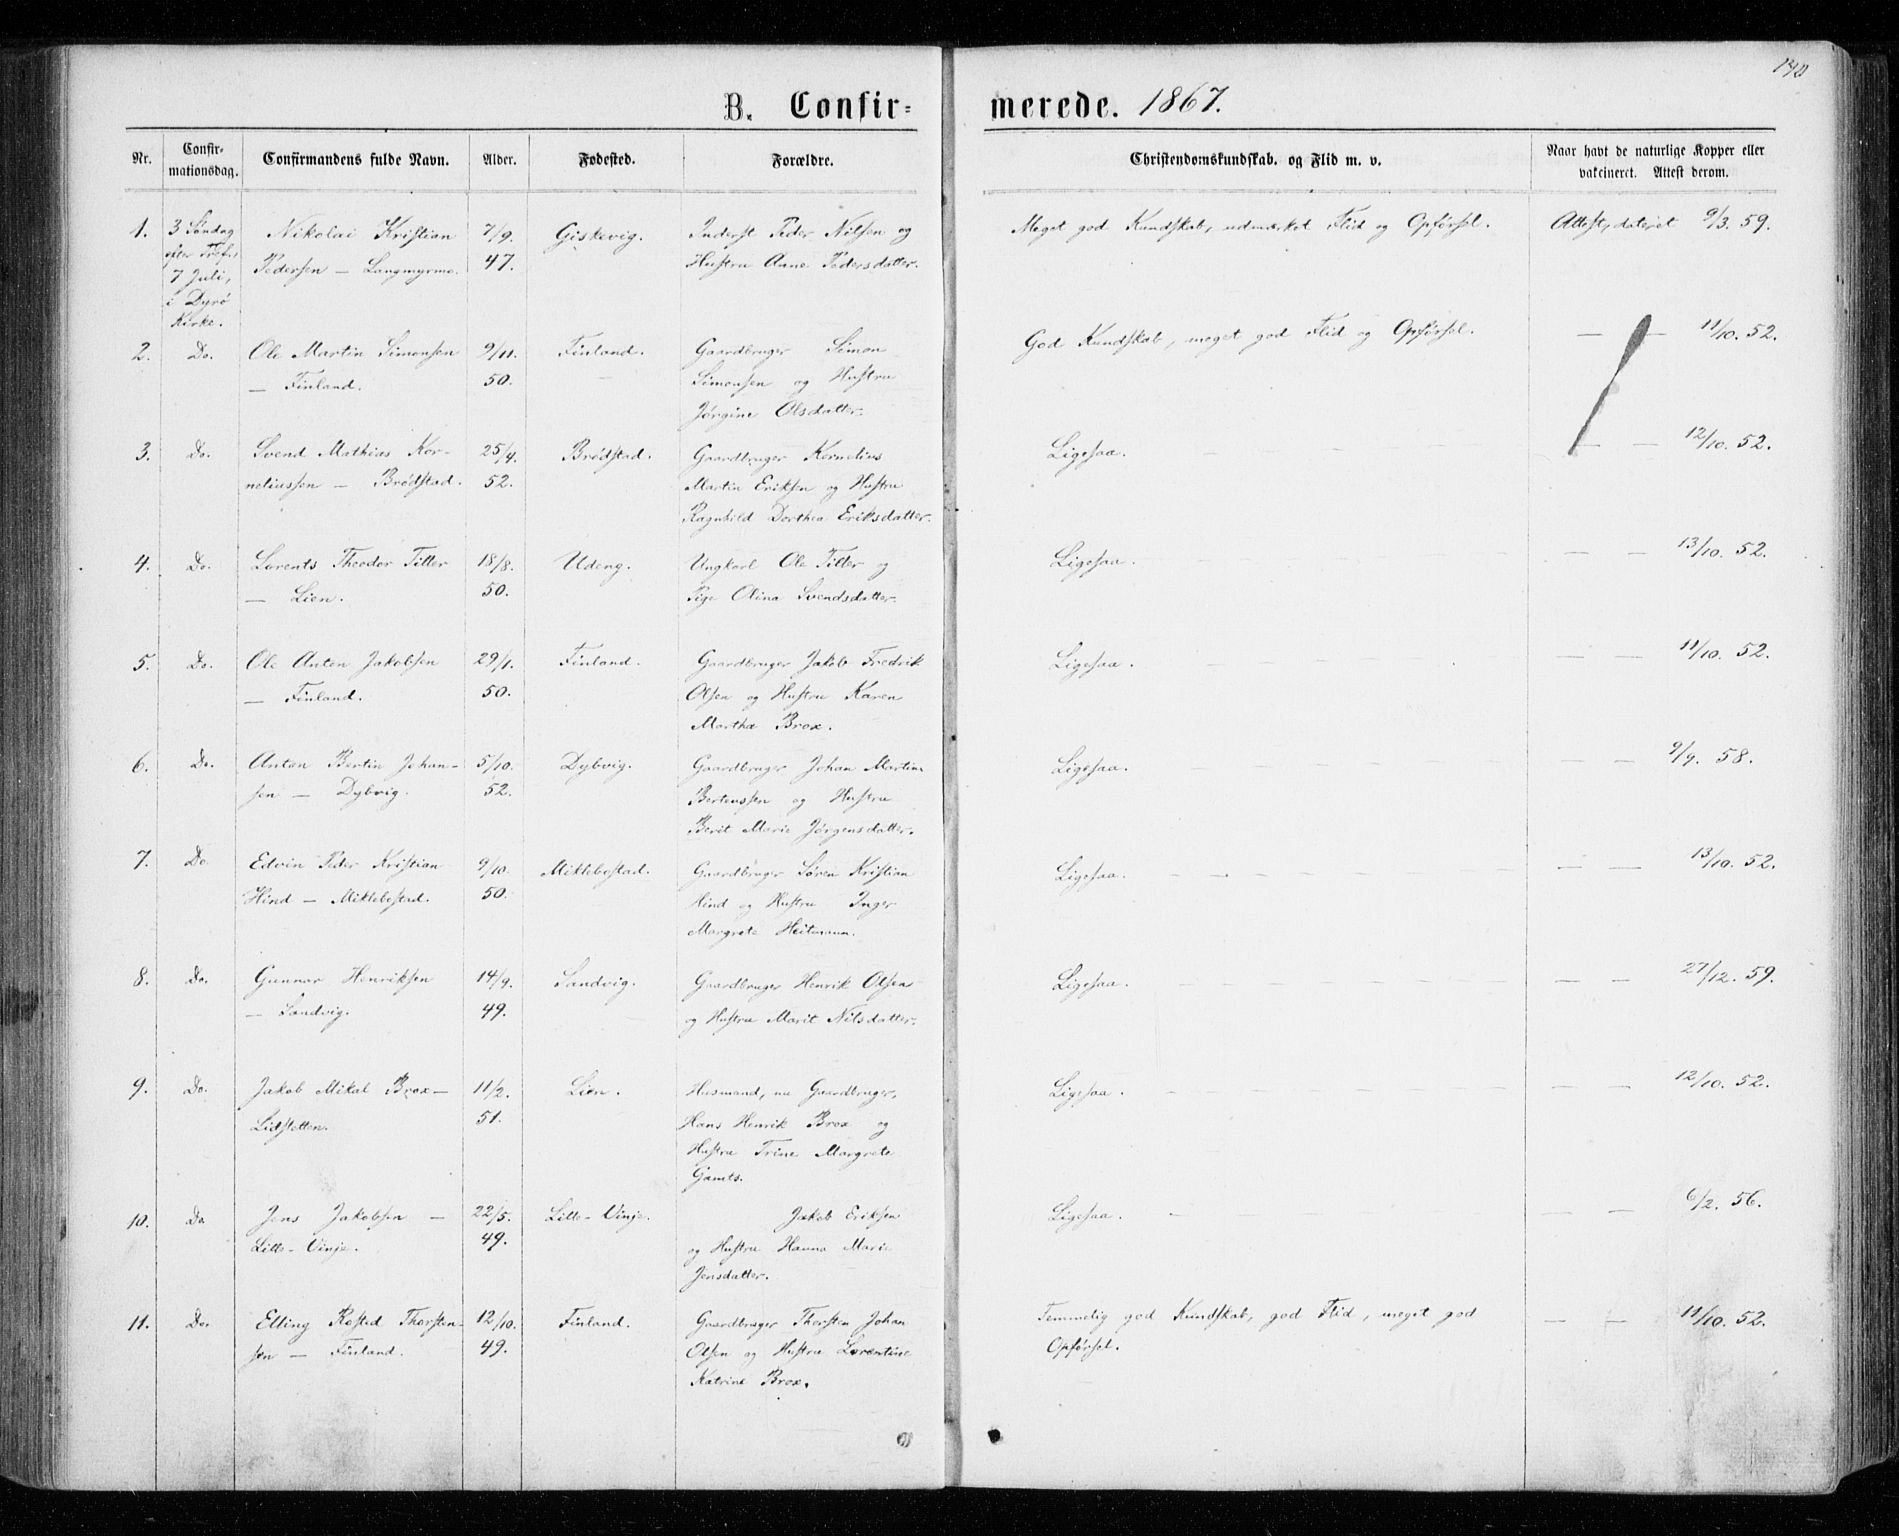 B. Confir- merede. 1867.
Nr. Confir-mationsdag. Confirmandens fulde Navn. Alder. Fødested. Forældre. Christendomskundskab. og Flid m. v. Naar havt de naturlige Kopper eller vakcineret. Attest derom.
1. 3 Søndag Nikolai Kristian 7/9. Giskevig. Inderst Peder Nilsen og Meget god Kundskab, udmærket Flid og Opførsel. Attest, dateret 9/3. 59.
efter Tref. Pedersen — Langmyrmo. 47. Hustru Anne Pedersdatter.
7 Juli,
i Dyrø
Kirke.
2. Do. Ole Martin Simonsen 9/11. Finland. Gaardbruger Simon God Kundskab, meget god Flid og Opførsel. — — 11/10. 52.
— Finland. 50. Simonsen og Hustru
Jørgine Olsdatter.
3. Do. Svend Mathias Kor- 25/4. Brødstad. Gaardbruger Kornelius Ligesaa. — — 12/10. 52.
neliussen — Brødstad. 52. Martin Eriksen og Hustru
Ragnhild Dorthea Eriksdatter.
4. Do. Lorents Theodor Tiller 18/8. Udeng. Ungkarl Ole Tiller og Ligesaa. — — 13/10. 52.
— Lien. 50. Pige Olina Svendsdatter.
5. Do. Ole Anton Jakobsen 29/1. Finland. Gaardbruger Jakob Fredrik Ligesaa. — — 11/10. 52.
— Finland. 50. Olsen og Hustru Karen
Martha Brox.
6. Do. Anton Bertin Johan- 5/10. Dybvig. Gaardbruger Johan Martin Ligesaa. 9/9. 58.
sen — Dybvig. 52. Berteussen og Hustru
Berit Marie Jørgensdatter.
7. Do. Edvin Peder Kristian 9/10. Miklebostad. Gaardbruger Søren Kristian Ligesaa. — — 13/10. 52.
Hind — Miklebostad. 50. Hind og Hustru Inger
Margrete Heitmann.
8. Do. Gunnar Henriksen 14/9. Sandvig. Gaardbruger Henrik Olsen Ligesaa. — — 27/12. 59.
— Sandvig. 49. og Hustru Marit Nilsdatter.
9. Do. Jakob Mikal Brox — 11/2. Lien. Husmand, nu Gaardbruger, Ligesaa. — — 12/10. 52.
Lidstetten. 51. Hans Henrik Brox og
Hustru Trine Margrete
Gamts.
10. Do. Jens Jakobsen — 22/5. Lille-Vinje. Jakob Eriksen Ligesaa. — — 6/2. 56.
Lille-Vinje. 49. og Hustru Hanna Marie
Jensdatter.
11. Do. Elling Rosted Thorsten- 12/10. Finland. Gaardbruger Thorsten Johan Temmelig god Kundskab, god Flid, meget god — — 11/10. 52.
sen — Finland. 49. Olsen og Hustru Lorentine Opførsel.
Katrine Brox.